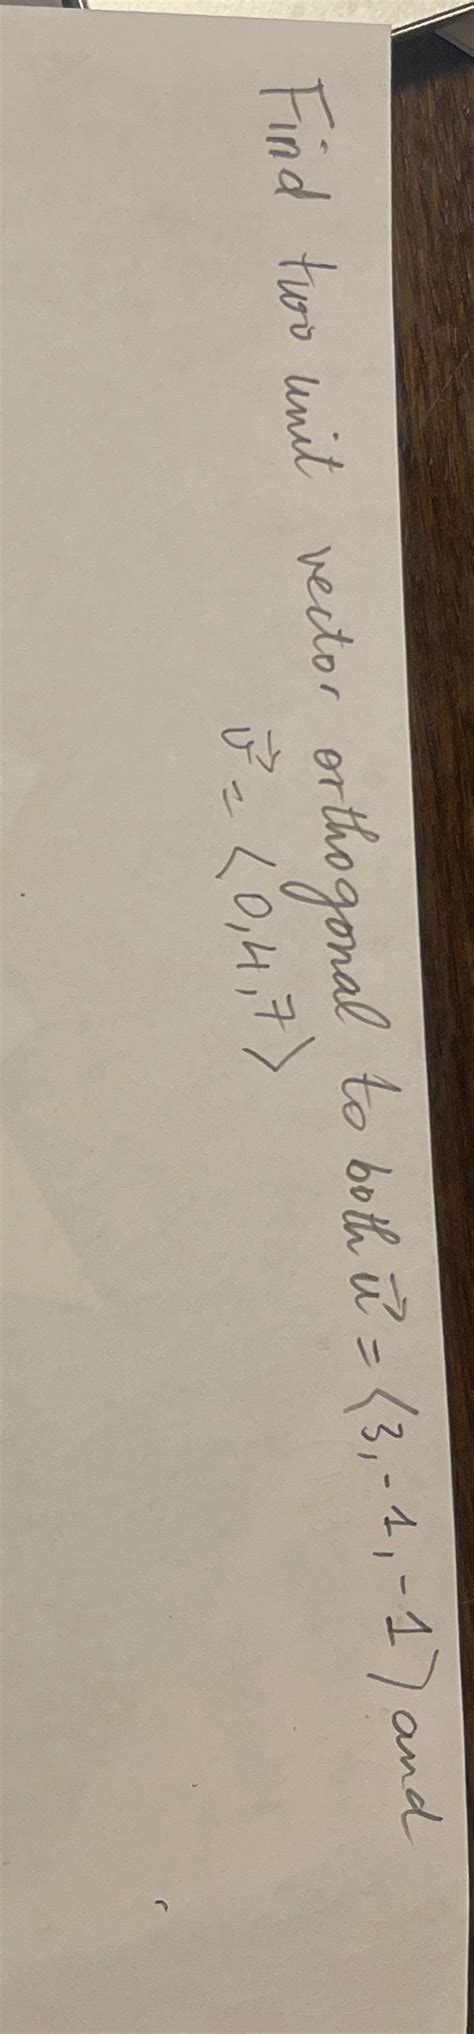 Find two unit vector orthogonal to both u⃗ = ⟨3, -1, -1⟩ and
v⃗ = ⟨0, 4, 7⟩